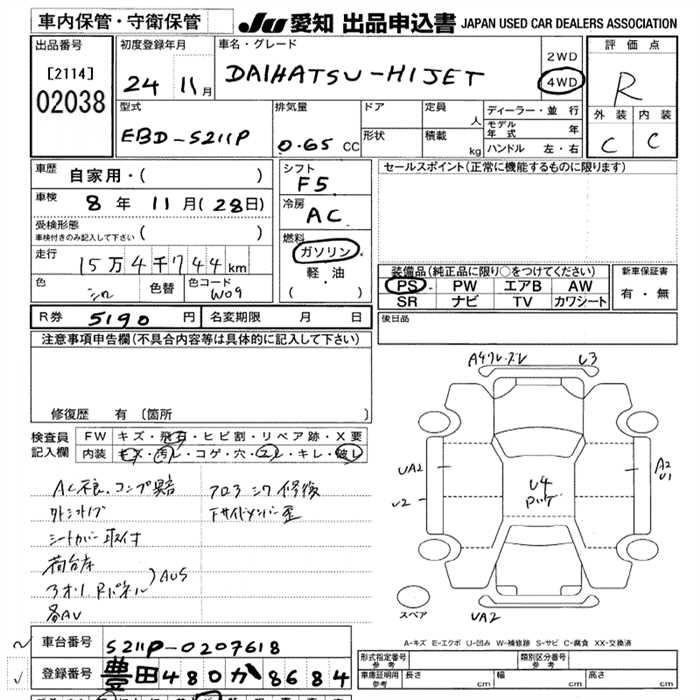 車内保管・守衛保管
JU 愛知 出品申込書 JAPAN USED CAR DEALERS ASSOCIATION
出品番号
[2114]
02038
初度登録年月
24 11月
車名・グレード
DAIHATSU-HIJET
2WD
4WD
評価点
R
外装 内装
C C
型式
EBD-S211P
排気量
0.65 CC
ドア
形状
定員
人
積載
kg
ディーラー・並行
モデル年式 年
ハンドル 左・右
車歴
自家用・( )
車検
8年 11月(28日)
受検形態
車検付きのみ記入して下さい ( )
走行
15万4千744km
色
シロ
色替
色コード
W09
シフト
F5
冷房
AC
燃料
ガソリン・
軽・油
( )
セールスポイント(正常に機能するものに限ります)
装備品(純正品に限り○をつけてください)
PS PW エアB AW
SR ナビ TV カワシート
新車保証書
有・無
後日品
R券 5190円
名変期限 月 日
注意事項申告欄(不具合内容等は具体的に記入して下さい)
修復歴 有 〔箇所 〕
検査員記入欄
FW キズ・飛石・ヒビ割・リペア跡・X要
内装 キズ・汚レ・コゲ・穴・スレ・キレ・破レ
AC不良、コンプ異音
シートカバー取付
荷台
3オリ Rパネル
)AUS
各AU
フロアシワ修復
下サイドメンバー歪
U3
UA2
U2
U4
A2
U1
UA2
スペア
A-キズ E-エクボ U-凹み W-補修跡 S-サビ C-腐食 XX-交換済
車台番号
S211P-0207618
登録番号
豊田480か8684
形式指定番号 参考
類別区分番号 参考
車庫証明用 参考
長さ cm
幅 cm
高さ cm